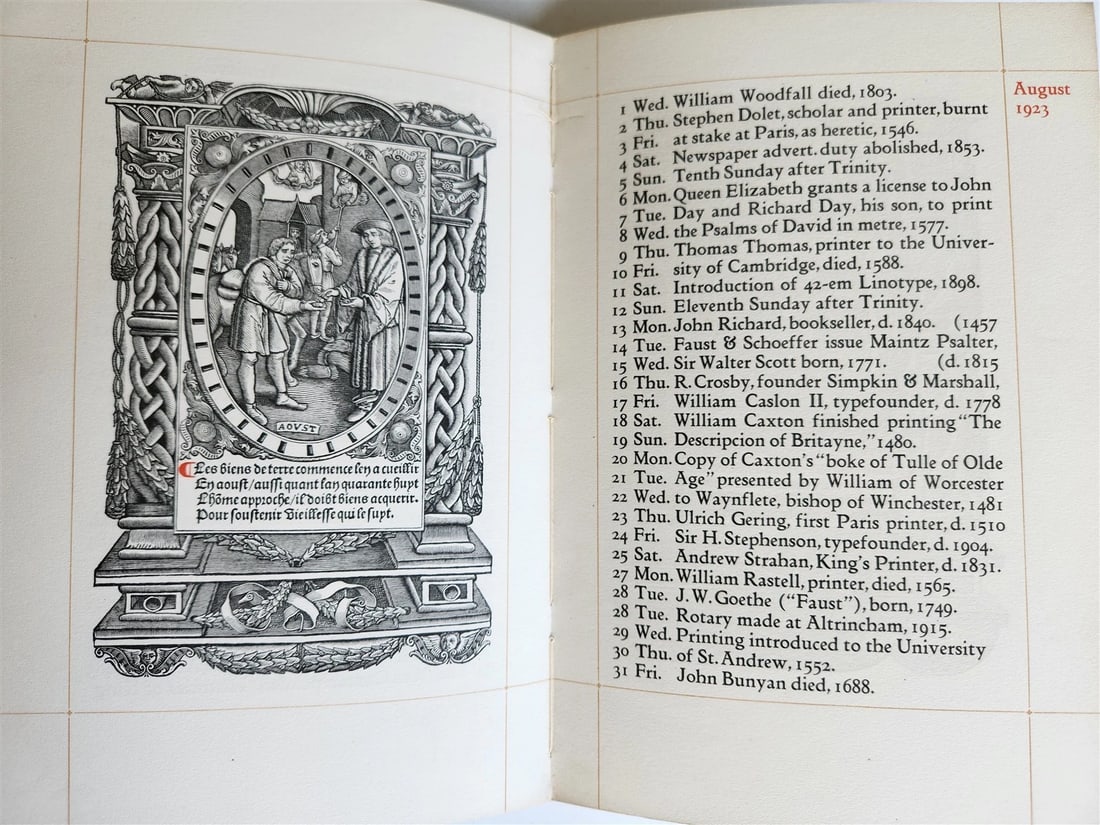 AOVST
¶Les biens de terre commence len a cueillir
En aoust/aussi quant lan quarante huyt
Lhõme approche/il doibt biens acquerir.
Pour soustenir vieillesse qui le suyt.
August
1923
1 Wed. William Woodfall died, 1803.
2 Thu. Stephen Dolet, scholar and printer, burnt
3 Fri. at stake at Paris, as heretic, 1546.
4 Sat. Newspaper advert. duty abolished, 1853.
5 Sun. Tenth Sunday after Trinity.
6 Mon. Queen Elizabeth grants a license to John
7 Tue. Day and Richard Day, his son, to print
8 Wed. the Psalms of David in metre, 1577.
9 Thu. Thomas Thomas, printer to the Univer-
10 Fri. sity of Cambridge, died, 1588.
11 Sat. Introduction of 42-em Linotype, 1898.
12 Sun. Eleventh Sunday after Trinity.
13 Mon. John Richard, bookseller, d. 1840. (1457
14 Tue. Faust & Schoeffer issue Maintz Psalter,
15 Wed. Sir Walter Scott born, 1771. (d. 1815
16 Thu. R. Crosby, founder Simpkin & Marshall,
17 Fri. William Caslon II, typefounder, d. 1778
18 Sat. William Caxton finished printing "The
19 Sun. Descripcion of Britayne," 1480.
20 Mon. Copy of Caxton's "boke of Tulle of Olde
21 Tue. Age" presented by William of Worcester
22 Wed. to Waynflete, bishop of Winchester, 1481
23 Thu. Ulrich Gering, first Paris printer, d. 1510
24 Fri. Sir H. Stephenson, typefounder, d. 1904.
25 Sat. Andrew Strahan, King's Printer, d. 1831.
27 Mon. William Rastell, printer, died, 1565.
28 Tue. J. W. Goethe ("Faust"), born, 1749.
28 Tue. Rotary made at Altrincham, 1915.
29 Wed. Printing introduced to the University
30 Thu. of St. Andrew, 1552.
31 Fri. John Bunyan died, 1688.